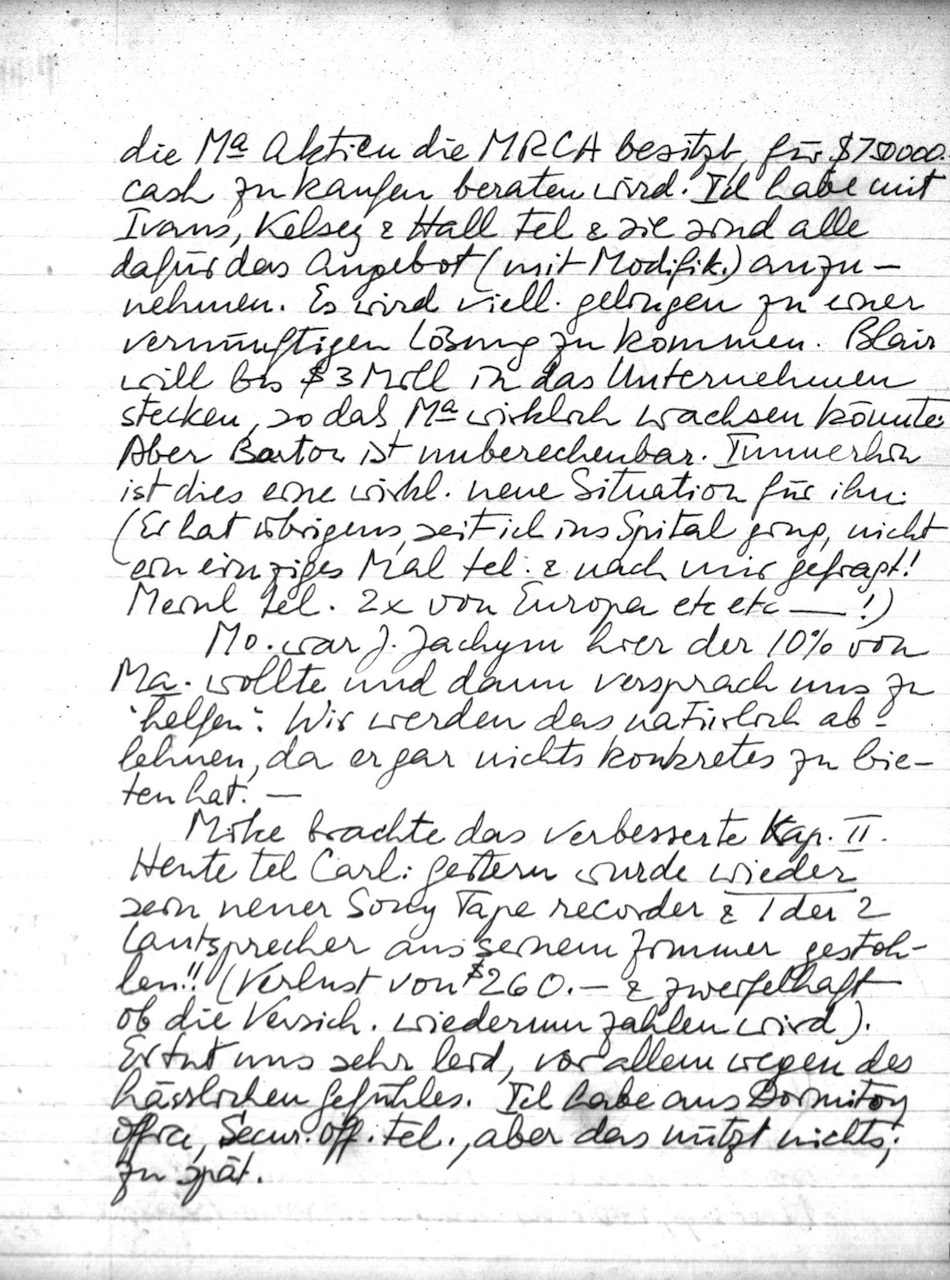 die Mª Aktien die MRCA besitzt, für $750000.
cash zu kaufen beraten wird. Ich habe mit
Ivans, Kelsey & Hall tel & sie sind alle
dafür das Angebot (mit Modifik.) anzu-
nehmen. Es wird viell. gelingen zu einer
vernünftigen Lösung zu kommen. Blair
will bis $3 Mill in das Unternehmen
stecken, so daß Mª wirklich wachsen könnte.
Aber Barton ist unberechenbar. Immerhin
ist dies eine wirkl. neue Situation für ihn.
(Er hat übrigens, seit ich ins Spital ging, nicht
ein einziges Mal tel. & nach mir gefragt!
tel. 2x von Europa etc etc — !)
Mo. war J. Jachym hier der 10% von
Ma. wollte und dann versprach uns zu
'helfen'. Wir werden das natürlich ab-
lehnen, da er gar nichts konkretes zu bie-
ten hat. —
Mike brachte das verbesserte Kap. II.
Heute tel Carl: gestern wurde wieder
sein neuer Sony Tape recorder & 1 der 2
Lautsprecher aus seinem Zimmer gestoh-
len!! (Verlust von $260.— & zweifelhaft
ob die Versich. wiederum zahlen wird).
Er tut uns sehr leid, vor allem wegen des
hässlichen Gefühles. Ich habe ans Dormitory
office, Secur. off. tel., aber das nützt nichts;
zu spät.